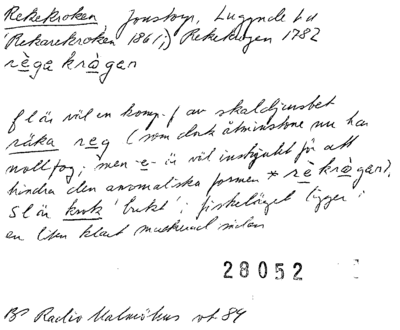 Rekekroken, Jonstorp, Luggude hd
'Rekarekroken 1861;) Rekekrogen 1782
règa kràgan
f l är väl en komp.-f av skaldjursbet
räka reg (som dock åtminstone nu har
nollfog; men -e- är väl inskjutet för att
hindra den anomaliska formen * rèkràgan).
Sl är krok 'bukt'; fiskeläget ligger i
en liten klart markerad sådan
28052
BP Radio Malmöhus vt 84